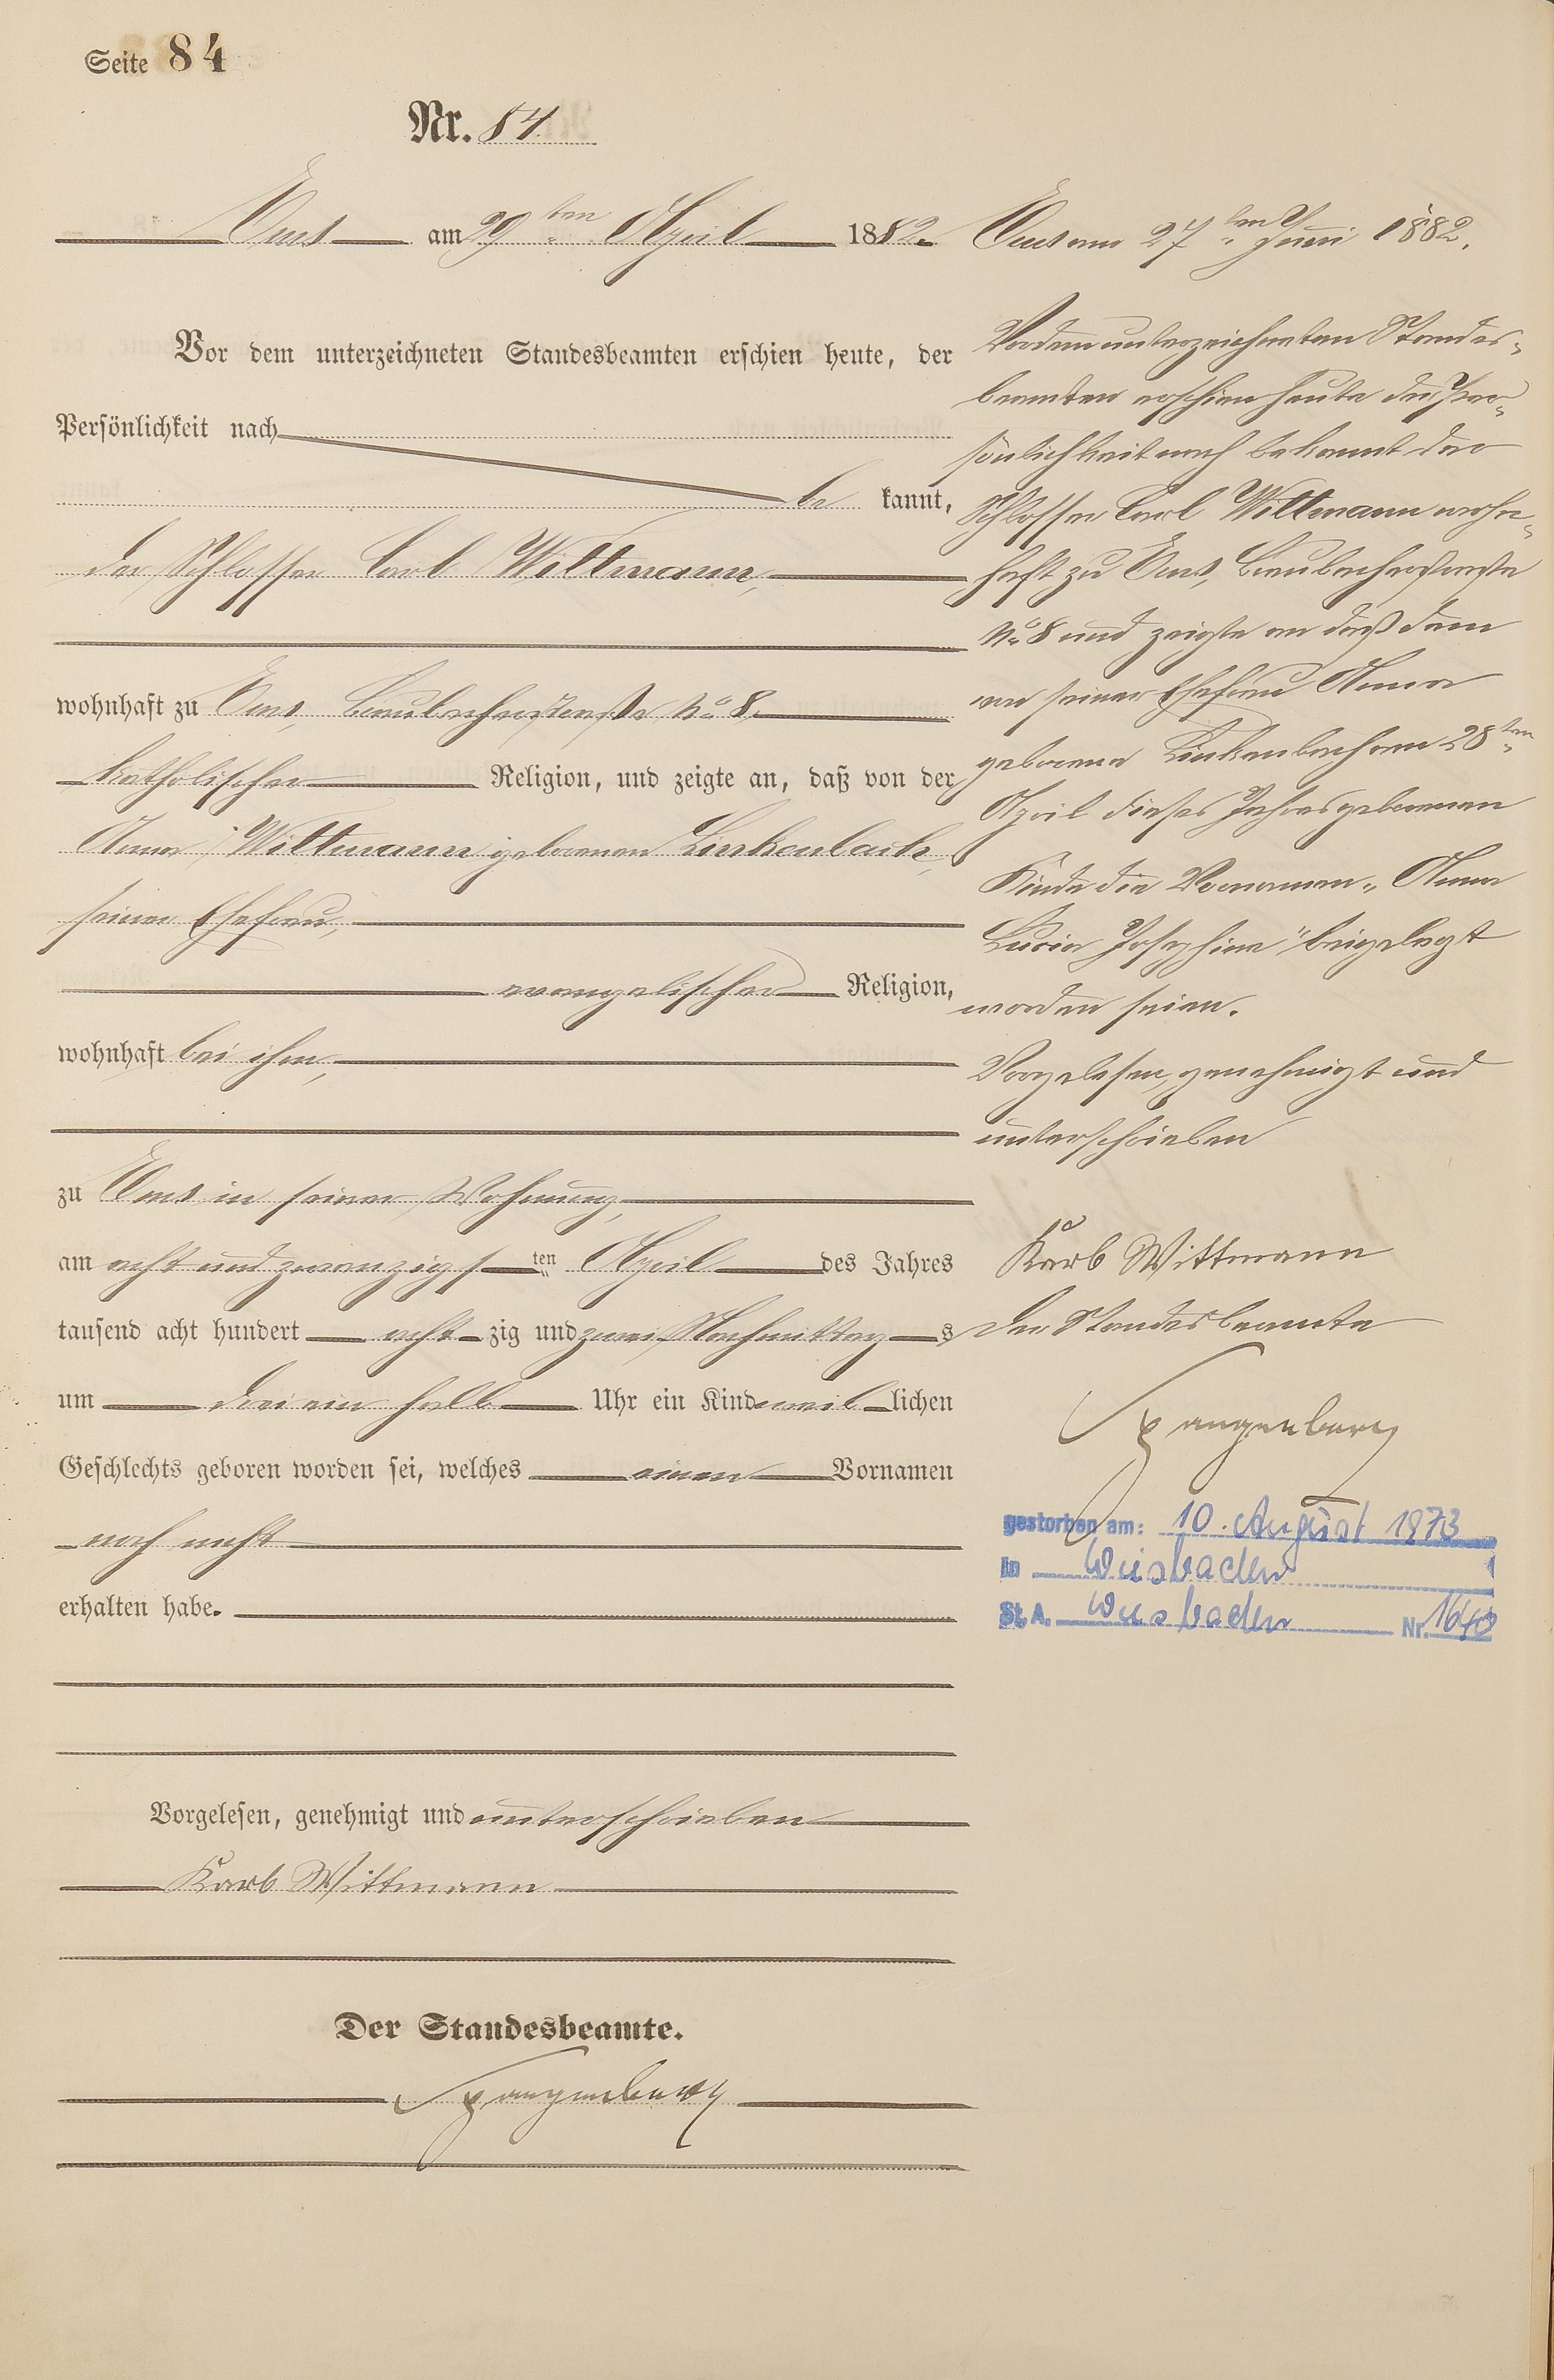 Seite 84
Nr. 84.
Ems am 29ten April 1882.
Vor dem unterzeichneten Standesbeamten erschien heute, der
Persönlichkeit nach
be kannt,
der Schlosser Carl Wittmann,
wohnhaft zu Ems, Braubacherstraße No 8,
katholischer Religion, und zeigte an, daß von der
Anna Wittmann geborenen Linkenbach,
seiner Ehefrau,
evangelischer Religion,
wohnhaft bei ihm,
zu Ems in seiner Wohnung,
am acht und zwanzigsten April des Jahres
tausend acht hundert acht zig und zwei Nachmittags
um drei ein halb Uhr ein Kind weiblichen
Geschlechts geboren worden sei, welches einen Vornamen
noch nicht
erhalten habe.
Vorgelesen, genehmigt und unterschrieben
Karl Wittmann
Der Standesbeamte.
Spangenberg
Ems am 27ten Juni 1882.
Vor dem unterzeichneten Standes-
beamten erschien heute der Per-
sönlichkeit nach bekannt der
Schlosser Carl Wittmann wohn-
haft zu Ems, Braubacherstraße
No 8 und zeigte an daß dem
von seiner Ehefrau Anna
geborene Linkenbach am 28ten
April dieses Jahres geborenen
Kinde die Vornamen „Anna
Lucia Josephine" beigelegt
worden seien.
Vorgelesen, genehmigt und
unterschrieben
Karl Wittmann
Der Standesbeamte
Spangenberg
gestorben am: 10. August 1973
in Wiesbaden
St. A. Wiesbaden Nr. 1640